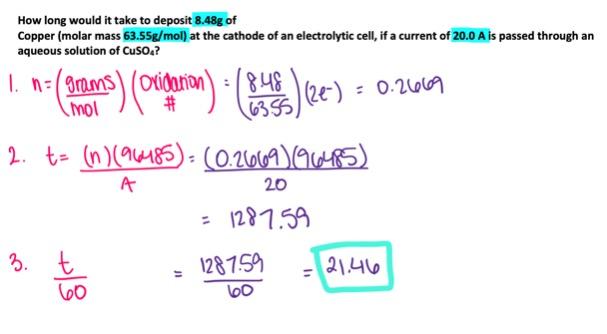 How long would it take to deposit 8.48g of
Copper (molar mass 63.55g/mol) at the cathode of an electrolytic cell, if a current of 20.0 A is passed through an
aqueous solution of CuSO₄?
1. n = (grams/mol) (Oxidation #) = (8.48/63.55) (2e-) = 0.2669
2. t = (n)(96485)/A = (0.2669)(96485)/20
= 1287.59
3. t/60 = 1287.59/60 = 21.46